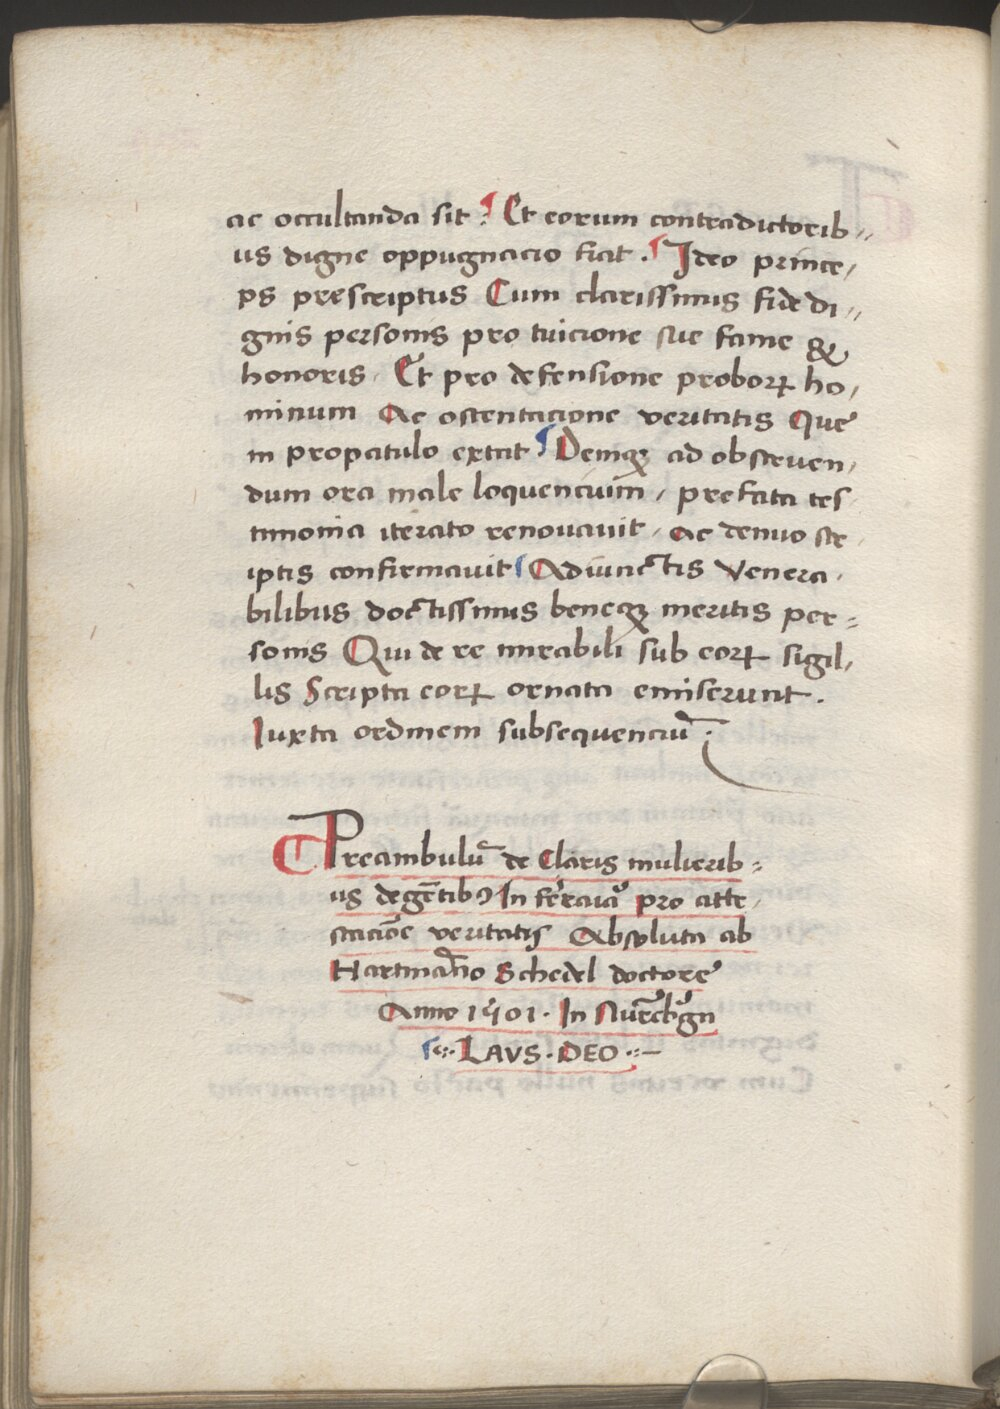 ac occultanda sit : Et eorum contradictorib〃
us digne oppugnacio fiat . Ideo prince/
ps prescriptus Cum clarissimis fide di〃
gnis personis pro tuicione sue fame &
honoris . Et pro defensione proboꝝ ho/
minum Ac ostentacione veritatis Que
in propatulo extat Deniqꝫ ad obstruen/
dum ora male loquencium / prefata tes/
timonia iterato renouauit / ac denuo scr/
iptis confirmauit Adiunctis Venera/
bilibus doctissimis beneqꝫ meritis per=
sonis Qui de re mirabili sub eoꝝ sigil/
lis Scripta eoꝝ ornata emiserunt .
Iuxta ordinem subsequenciū .
Preambulū de Claris mulierib=
us degētibꝰ In ferāia pro atte/
stacīoe veritatis Absoluta ab
Hartmāno Schedel doctore
Anno 1501 . In Nurēbᵉgn
LAVS . DEO .